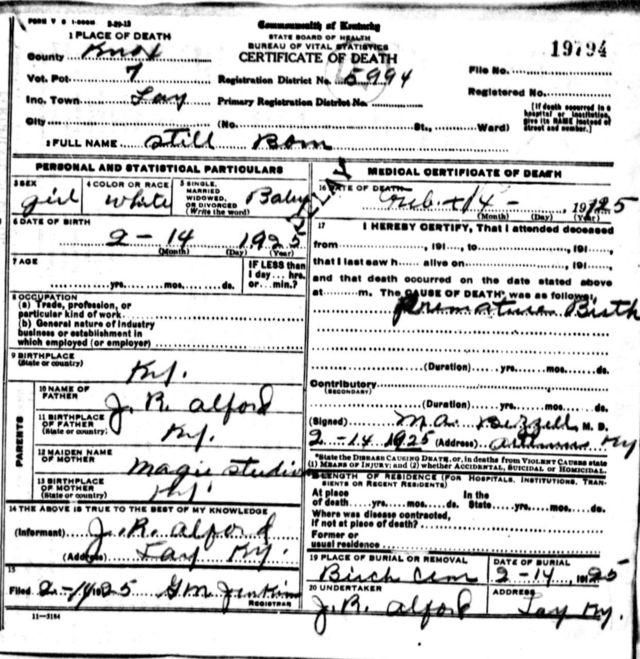 FORM V S 1-500M 3-29-13
Commonwealth of Kentucky
STATE BOARD OF HEALTH
BUREAU OF VITAL STATISTICS
CERTIFICATE OF DEATH
19794
1 PLACE OF DEATH
County Knox
Vot. Pct. 7 Registration District No. 5994 File No.
Inc. Town Lay Primary Registration District No. Registered No.
City (No. St., Ward)
[If death occurred in a hospital or institution, give its NAME instead of street and number.]
2 FULL NAME Still Born
PERSONAL AND STATISTICAL PARTICULARS
3 SEX girl
4 COLOR OR RACE white
5 SINGLE, MARRIED WIDOWED, OR DIVORCED (Write the word) Baby
6 DATE OF BIRTH
2-14 1925
(Month) (Day) (Year)
7 AGE
yrs. mos. ds.
IF LESS than 1 day... hrs. or... min.?
8 OCCUPATION
(a) Trade, profession, or particular kind of work
(b) General nature of industry business or establishment in which employed (or employer)
9 BIRTHPLACE (State or country) Ky.
PARENTS
10 NAME OF FATHER J. R. Alford
11 BIRTHPLACE OF FATHER (State or country) Ky.
12 MAIDEN NAME OF MOTHER Magie
13 BIRTHPLACE OF MOTHER (State or country) Ky.
14 THE ABOVE IS TRUE TO THE BEST OF MY KNOWLEDGE
(Informant) J. R. Alford
(Address) Lay Ky.
15
Filed 2-14 1925 G.M. Jenkins
REGISTRAR
11-3184
MEDICAL CERTIFICATE OF DEATH
DELAY
16 DATE OF DEATH
Feb 14 - 1925
(Month) (Day) (Year)
17 I HEREBY CERTIFY, That I attended deceased
from , 191 , to , 191 ,
that I last saw h alive on , 191 ,
and that death occurred on the date stated above
at m. The CAUSE OF DEATH* was as follows:
Premature Birth
(Duration) yrs. mos. ds.
Contributory
(SECONDARY)
(Duration) yrs. mos. ds.
(Signed) M. A. , M. D.
2-14 1925 (Address) Ky
*State the DISEASE CAUSING DEATH, or, in deaths from VIOLENT CAUSES state (1) MEANS OF INJURY; and (2) whether ACCIDENTAL, SUICIDAL OR HOMICIDAL
18 LENGTH OF RESIDENCE (FOR HOSPITALS, INSTITUTIONS, TRANSIENTS OR RECENT RESIDENTS)
At place of death yrs. mos. ds. In the State yrs. mos. ds.
Where was disease contracted, if not at place of death?
Former or usual residence
19 PLACE OF BURIAL OR REMOVAL Birch Cem
DATE OF BURIAL 2-14 1925
20 UNDERTAKER J. R. Alford
ADDRESS Lay Ky.